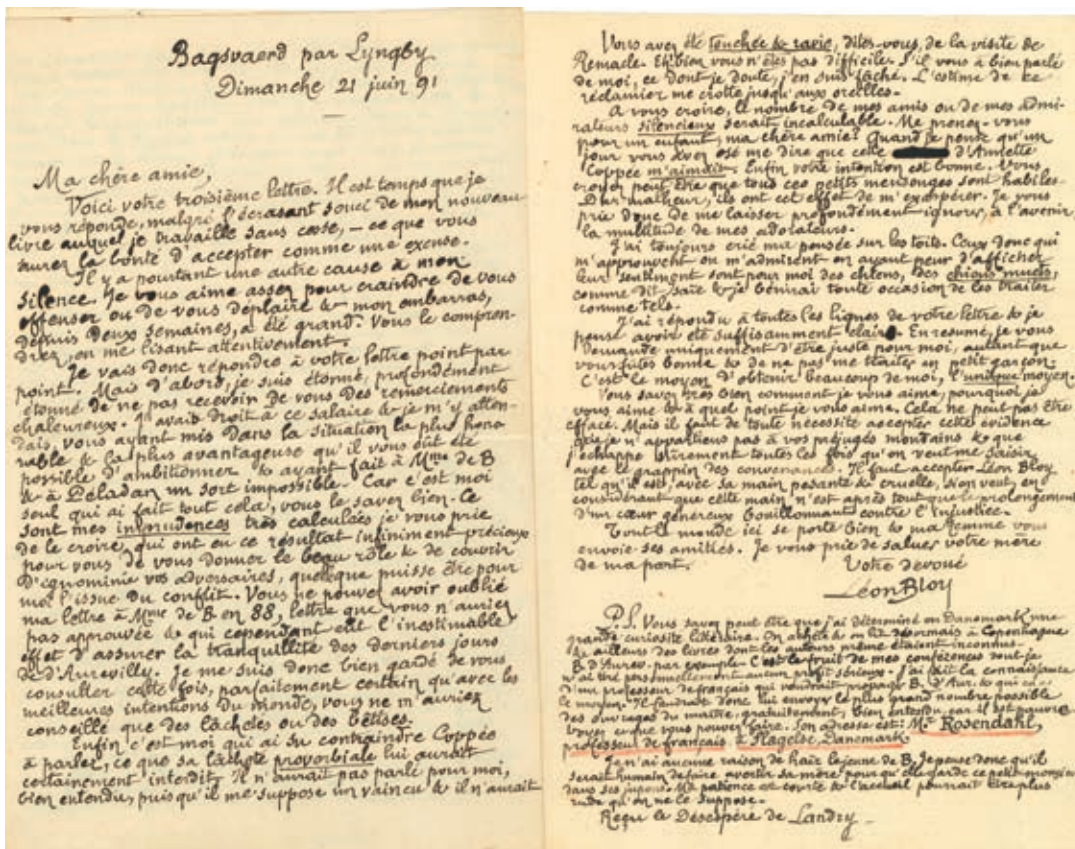 Bagsvaerd par Lyngby
Dimanche 21 juin 91
Ma chère amie,
Voici votre troisième lettre. Il est temps que je
vous réponde, malgré l'écrasant souci de mon nouveau
livre auquel je travaille sans cesse, – ce que vous
aurez la bonté d'accepter comme une excuse.
Il y a pourtant une autre cause à mon
silence. Je vous aime assez pour craindre de vous
offenser ou de vous déplaire & mon embarras,
depuis deux semaines, a été grand. Vous le compren-
drez, en me lisant attentivement.
Je vais donc répondre à votre lettre point par
point. Mais d'abord, je suis étonné, profondément
étonné de ne pas recevoir de vous des remerciements
chaleureux. J'avais droit à ce salaire & je m'y atten-
dais, vous ayant mis dans la situation la plus hono
rable & la plus avantageuse qu'il vous eût été
possible d'ambitionner & ayant fait à Mme de B
& à Péladan un sort impossible. Car c'est moi
seul qui ai fait tout cela, vous le savez bien. Ce
sont mes imprudences très calculées je vous prie
de le croire, qui ont eu ce résultat infiniment précieux
pour vous de vous donner le beau rôle & de couvrir
d'ignominie vos adversaires, quelque puisse être pour
moi l'issue du conflit. Vous ne pouvez avoir oublié
ma lettre à Mme de B en 88, lettre que vous n'auriez
pas approuvée & qui cependant eut l'inestimable
effet d'assurer la tranquillité des derniers jours
de d'Aurevilly. Je me suis donc bien gardé de vous
consulter cette fois, parfaitement certain qu'avec les
meilleures intentions du monde, vous ne m'auriez
conseillé que des lâchetés ou des bêtises.
Enfin c'est moi qui ai su contraindre Coppée
à parler, ce que sa lâcheté proverbiale lui aurait
certainement interdit. Il n'aurait pas parlé pour moi,
bien entendu, puisqu'il me suppose un vaincu & il n'aurait
Vous avez été touchée & ravie, dites-vous, de la visite de
Remacle. Eh bien vous n'êtes pas difficile. S'il vous a bien parlé
de moi, ce dont je doute, j'en suis fâché. L'estime de ce
réclamier me crotte jusqu'aux oreilles.
A vous croire, le nombre de mes amis ou de mes admi-
rateurs silencieux serait incalculable. Me prenez-vous
pour un enfant, ma chère amie? Quand je pense qu'un
jour vous avez osé me dire que cette d'Annette
Coppée m'aimait. Enfin votre intention est bonne. Vous
croyez peut être que tous ces petits mensonges sont habiles.
Par malheur, ils ont cet effet de m'exaspérer. Je vous
prie donc de me laisser profondément ignorer, à l'avenir
la multitude de mes adorateurs.
J'ai toujours crié ma pensée sur les toits. Ceux donc qui
m'approuvent ou m'admirent en ayant peur d'afficher
leur sentiment sont pour moi des chiens, des chiens muets,
comme dit Isaïe & je bénirai toute occasion de les traiter
comme tels.
J'ai répondu à toutes les lignes de votre lettre & je
pense avoir été suffisamment clair. En résumé, je vous
demande uniquement d'être juste pour moi, autant que
vous fûtes bonne & de ne pas me traiter en petit garçon.
C'est le moyen d'obtenir beaucoup de moi, l'unique moyen.
Vous savez très bien comment je vous aime, pourquoi je
vous aime & à quel point je vous aime. Cela ne peut pas être
effacé. Mais il faut de toute nécessité accepter cette évidence
que je n'appartiens pas à vos préjugés mondains & que
j'échappe toutes les fois qu'on veut me saisir
avec le grappin des convenances. Il faut accepter Léon Bloy
tel qu'il est, avec sa main pesante & cruelle, si on veut, en
considérant que cette main n'est après tout que le prolongement
d'un cœur généreux bouillonnant contre l'injustice.
Tout le monde ici se porte bien & ma femme vous
envoie ses amitiés. Je vous prie de saluer votre mère
de ma part.
Votre dévoué
Léon Bloy
P.S. Vous savez peut être que j'ai déterminé en Danemark une
grande curiosité littéraire. On achète & on lit désormais à Copenhague
& ailleurs des livres dont les auteurs même étaient inconnus.
B. d'Aurev. par exemple. C'est le fruit de mes conférences dont je
n'ai tiré personnellement aucun profit sérieux. J'ai fait la connaissance
d'un professeur de français qui voudrait propager B. d'Aur. & qui en a
le moyen. Il faudrait donc lui envoyer le plus grand nombre possible
des ouvrages du maître, gratuitement, bien entendu, car il est pauvre.
Voyez ce que vous pouvez faire. Son adresse est: Mr Rosendahl,
professeur de français à Slagelse, Danemark.
Je n'ai aucune raison de haïr le jeune de B. Je pense donc qu'il
serait humain de faire avertir sa mère pour qu'elle garde ce petit monsieur
dans ses jupons. Ma patience est courte & l'accueil pourrait être plus
rude qu'on ne le suppose.
Reçu le Désespéré de Landry.